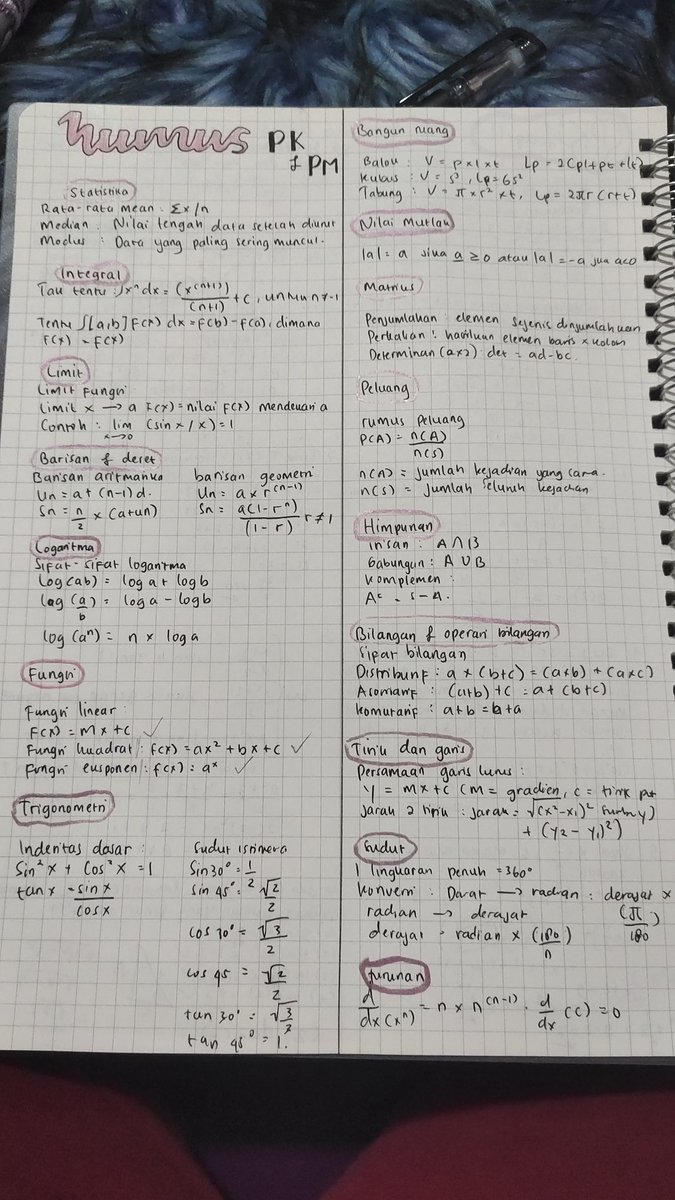 rumus PK
& PM
Statistika
Rata-rata mean : Σx/n
Median : Nilai tengah data setelah diurut
Modus : Data yang paling sering muncul.
Integral
Tak tentu : ∫xⁿ dx = (x^(n+1))/(n+1) + C, untuk n ≠ -1
Tentu ∫[a,b] f(x) dx = F(b) - F(a), dimana
F(x) = f(x)
Limit
Limit Fungsi
Limit x → a F(x) = nilai F(x) mendekati a
Contoh : lim x→0 (sin x / x) = 1
Barisan & deret
Barisan aritmatika
Un = a + (n-1) d.
Sn = n/2 × (a+un)
barisan geometri
Un = a × r^(n-1)
Sn = a(1-rⁿ)/(1-r) r ≠ 1
Logaritma
Sifat-sifat logaritma
Log(ab) = log a + log b
log (a/b) = log a - log b
log (aⁿ) = n × log a
Fungsi
Fungsi linear :
F(x) = mx + c ✓
Fungsi kuadrat : f(x) = ax² + bx + c ✓
Fungsi eksponen : f(x) = aˣ ✓
Trigonometri
Indentitas dasar :
Sin²x + Cos²x = 1
tan x = sin x/cos x
Sudut istimewa
Sin 30° = 1/2
Sin 45° = √2/2
cos 30° = √3/2
cos 45 = √2/2
tan 30° = √3/3
tan 45° = 1.
Bangun ruang
Balok : V = p × l × t Lp = 2(pl + pt + lt)
Kubus : V = s³, Lp = 6s²
Tabung : V = π × r² × t, Lp = 2πr (r+t)
Nilai Mutlak
|a| = a jika a ≥ 0 atau |a| = -a jika a<0
Matriks
Penjumlahan : elemen sejenis dijumlahkan
Perkalian : hasilkan elemen baris × kolom
Determinan (2×2) : det = ad - bc.
Peluang
rumus Peluang
P(A) = n(A)/n(S)
n(A) = jumlah kejadian yang
n(S) = jumlah seluruh kejadian
Himpunan
irisan : A ∩ B
Gabungan : A ∪ B
Komplemen :
Aᶜ = S - A.
Bilangan & operasi bilangan
Sifat bilangan
Distributif : a × (b+c) = (a×b) + (a×c)
Asosiatif : (a+b) + c = a + (b+c)
komutatif : a+b = b+a
Titik dan garis
Persamaan garis lurus :
y = mx + c (m = gradien, c = titik
Jarak 2 titik : jarak = √(x² - x₁)² sumbu y)
+ (y₂ - y₁)²)
Sudut
1 lingkaran penuh = 360°
Konversi : Darat → radian : derajat ×
radian → derajat (π/180)
derajat = radian × (180/π)
turunan
d/dx (xⁿ) = n × n^(n-1) . d/dx (c) = 0